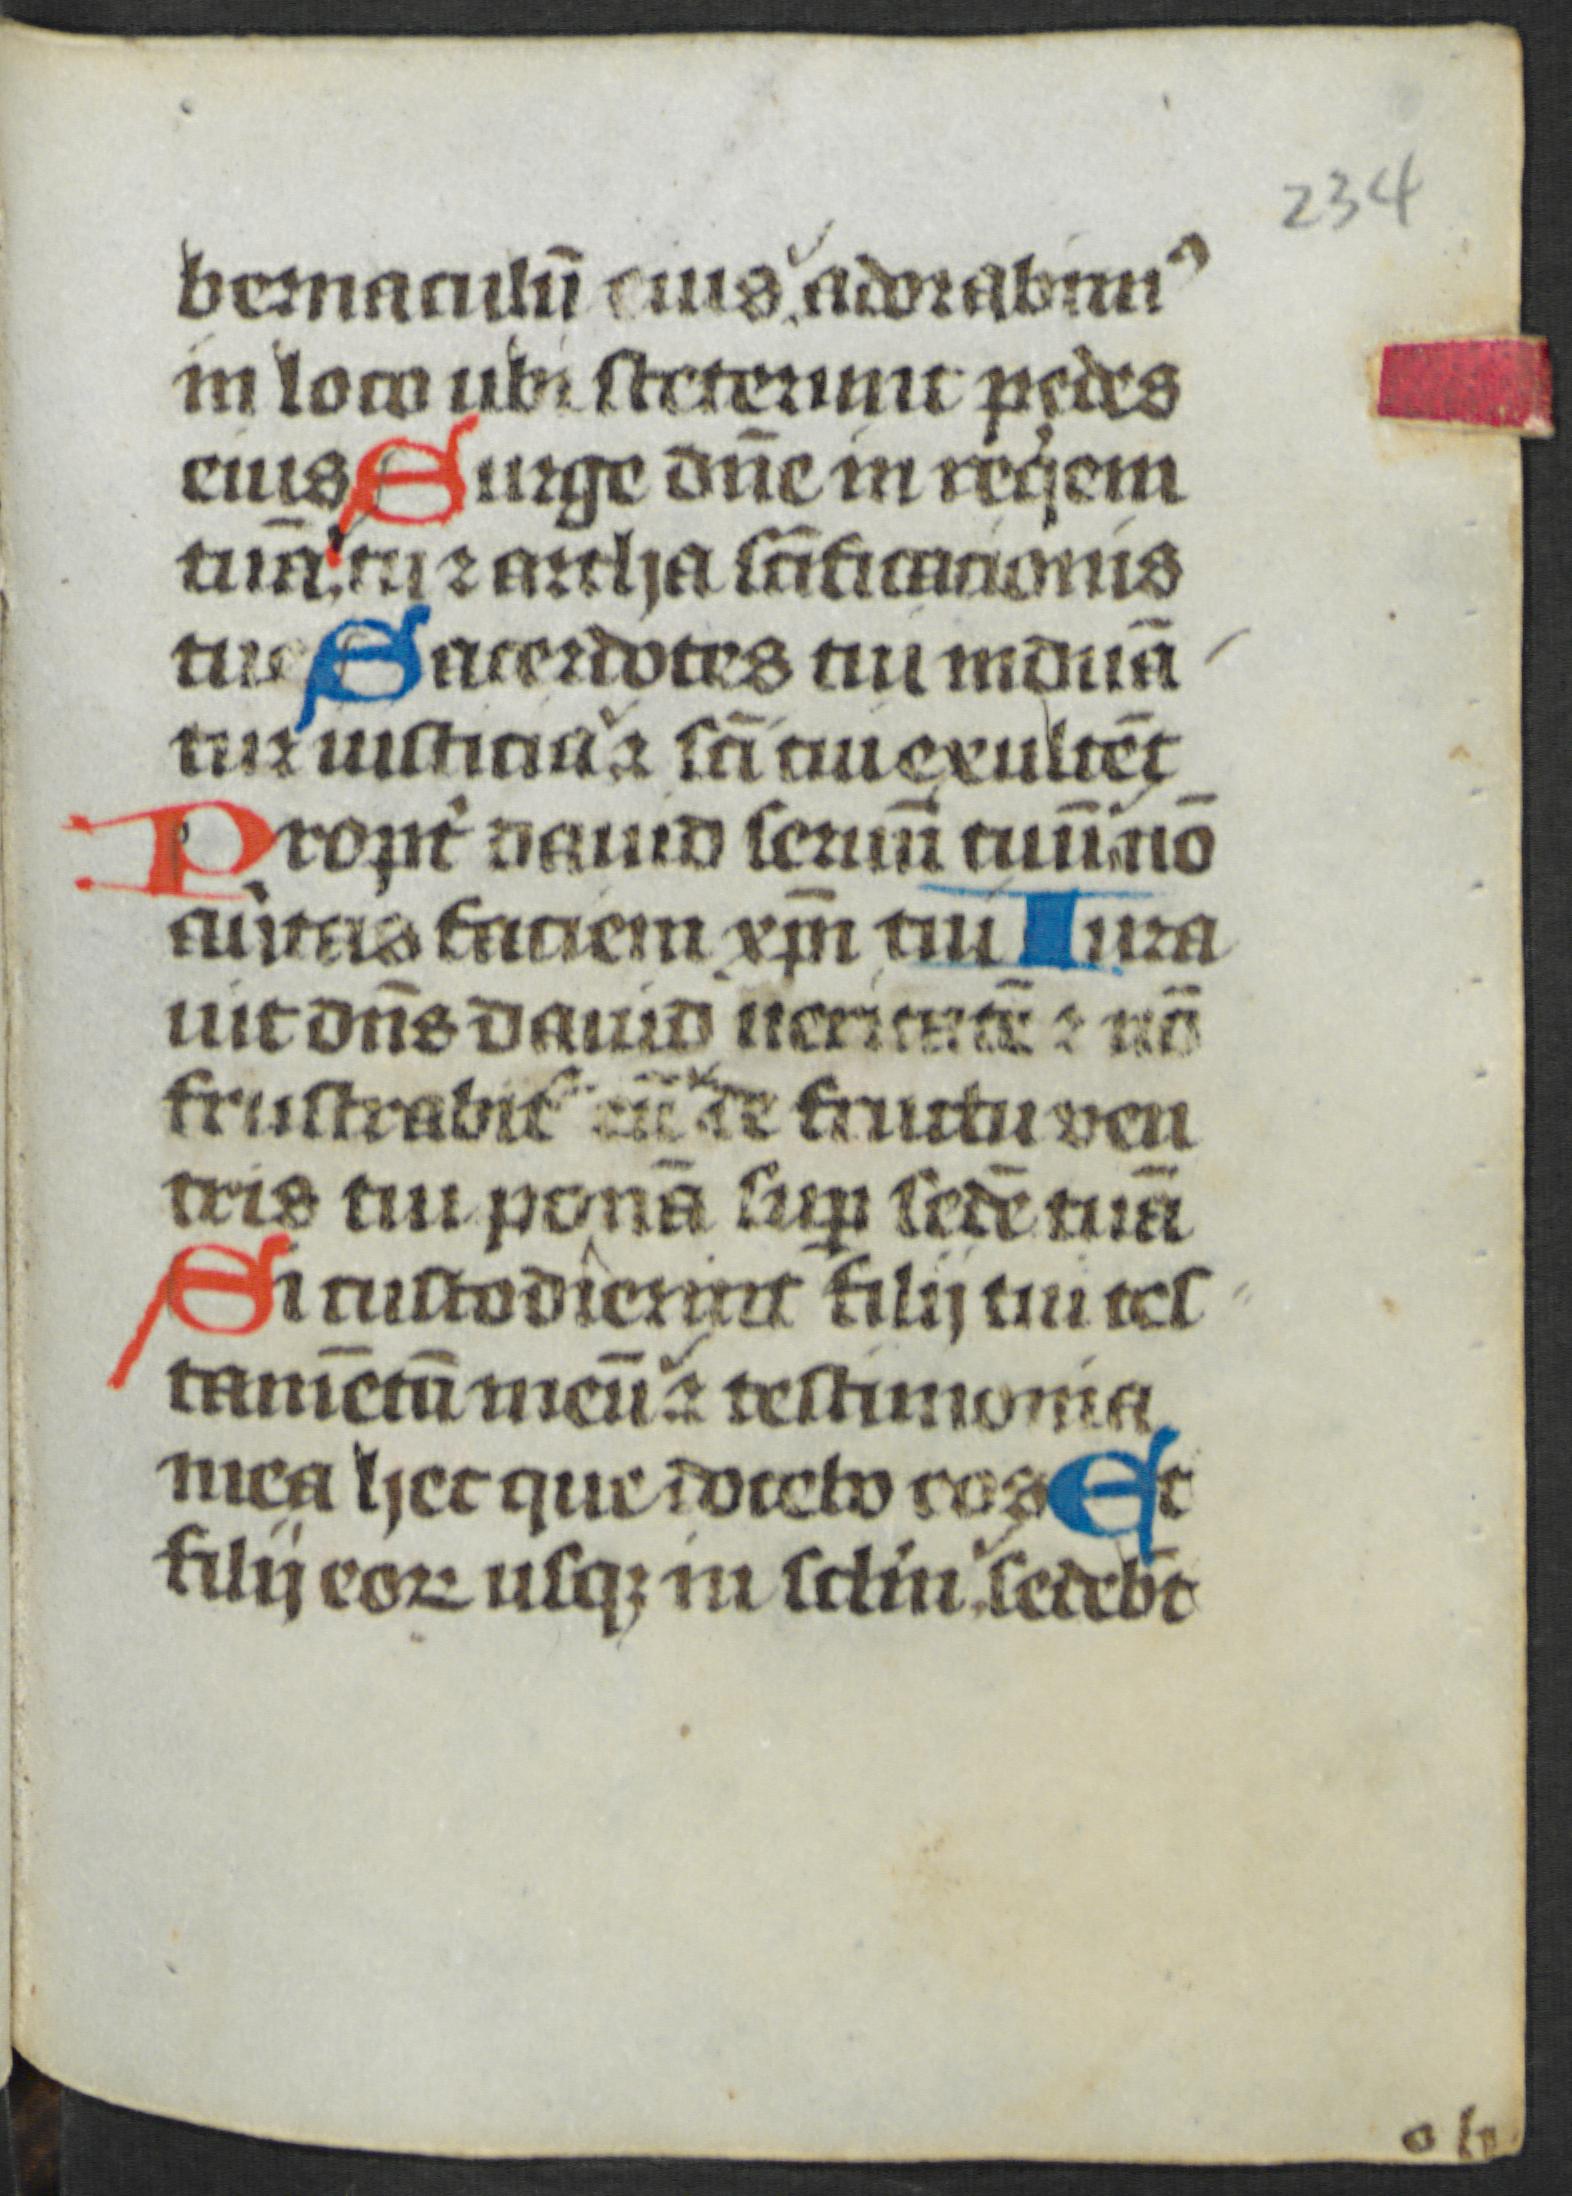 234
bernaculū eius adorabim᷒
in loco ubi steterunt pedes
eius Surge dn̄e in req̇em
tuā tu ⁊ archa sc̄ificacionis
tue Sacerdotes tui induā
tur iusticia ⁊ sc̄i tui exultēt
Propt̉ dauid seruū tuū nō
au̓tas faciem xp̄i tui Iura
uit dn̄s dauid ueritatē ⁊ nō
frustrabit᷑ eū de fructu ven
tris tui ponā sup̱ sedē tuā
Si custodierint filij tui tes
tamētū meū ⁊ testimonia
mea hec que docebo eos Et
filij eoꝝ usqꝫ in sclm̄ sedebt̄